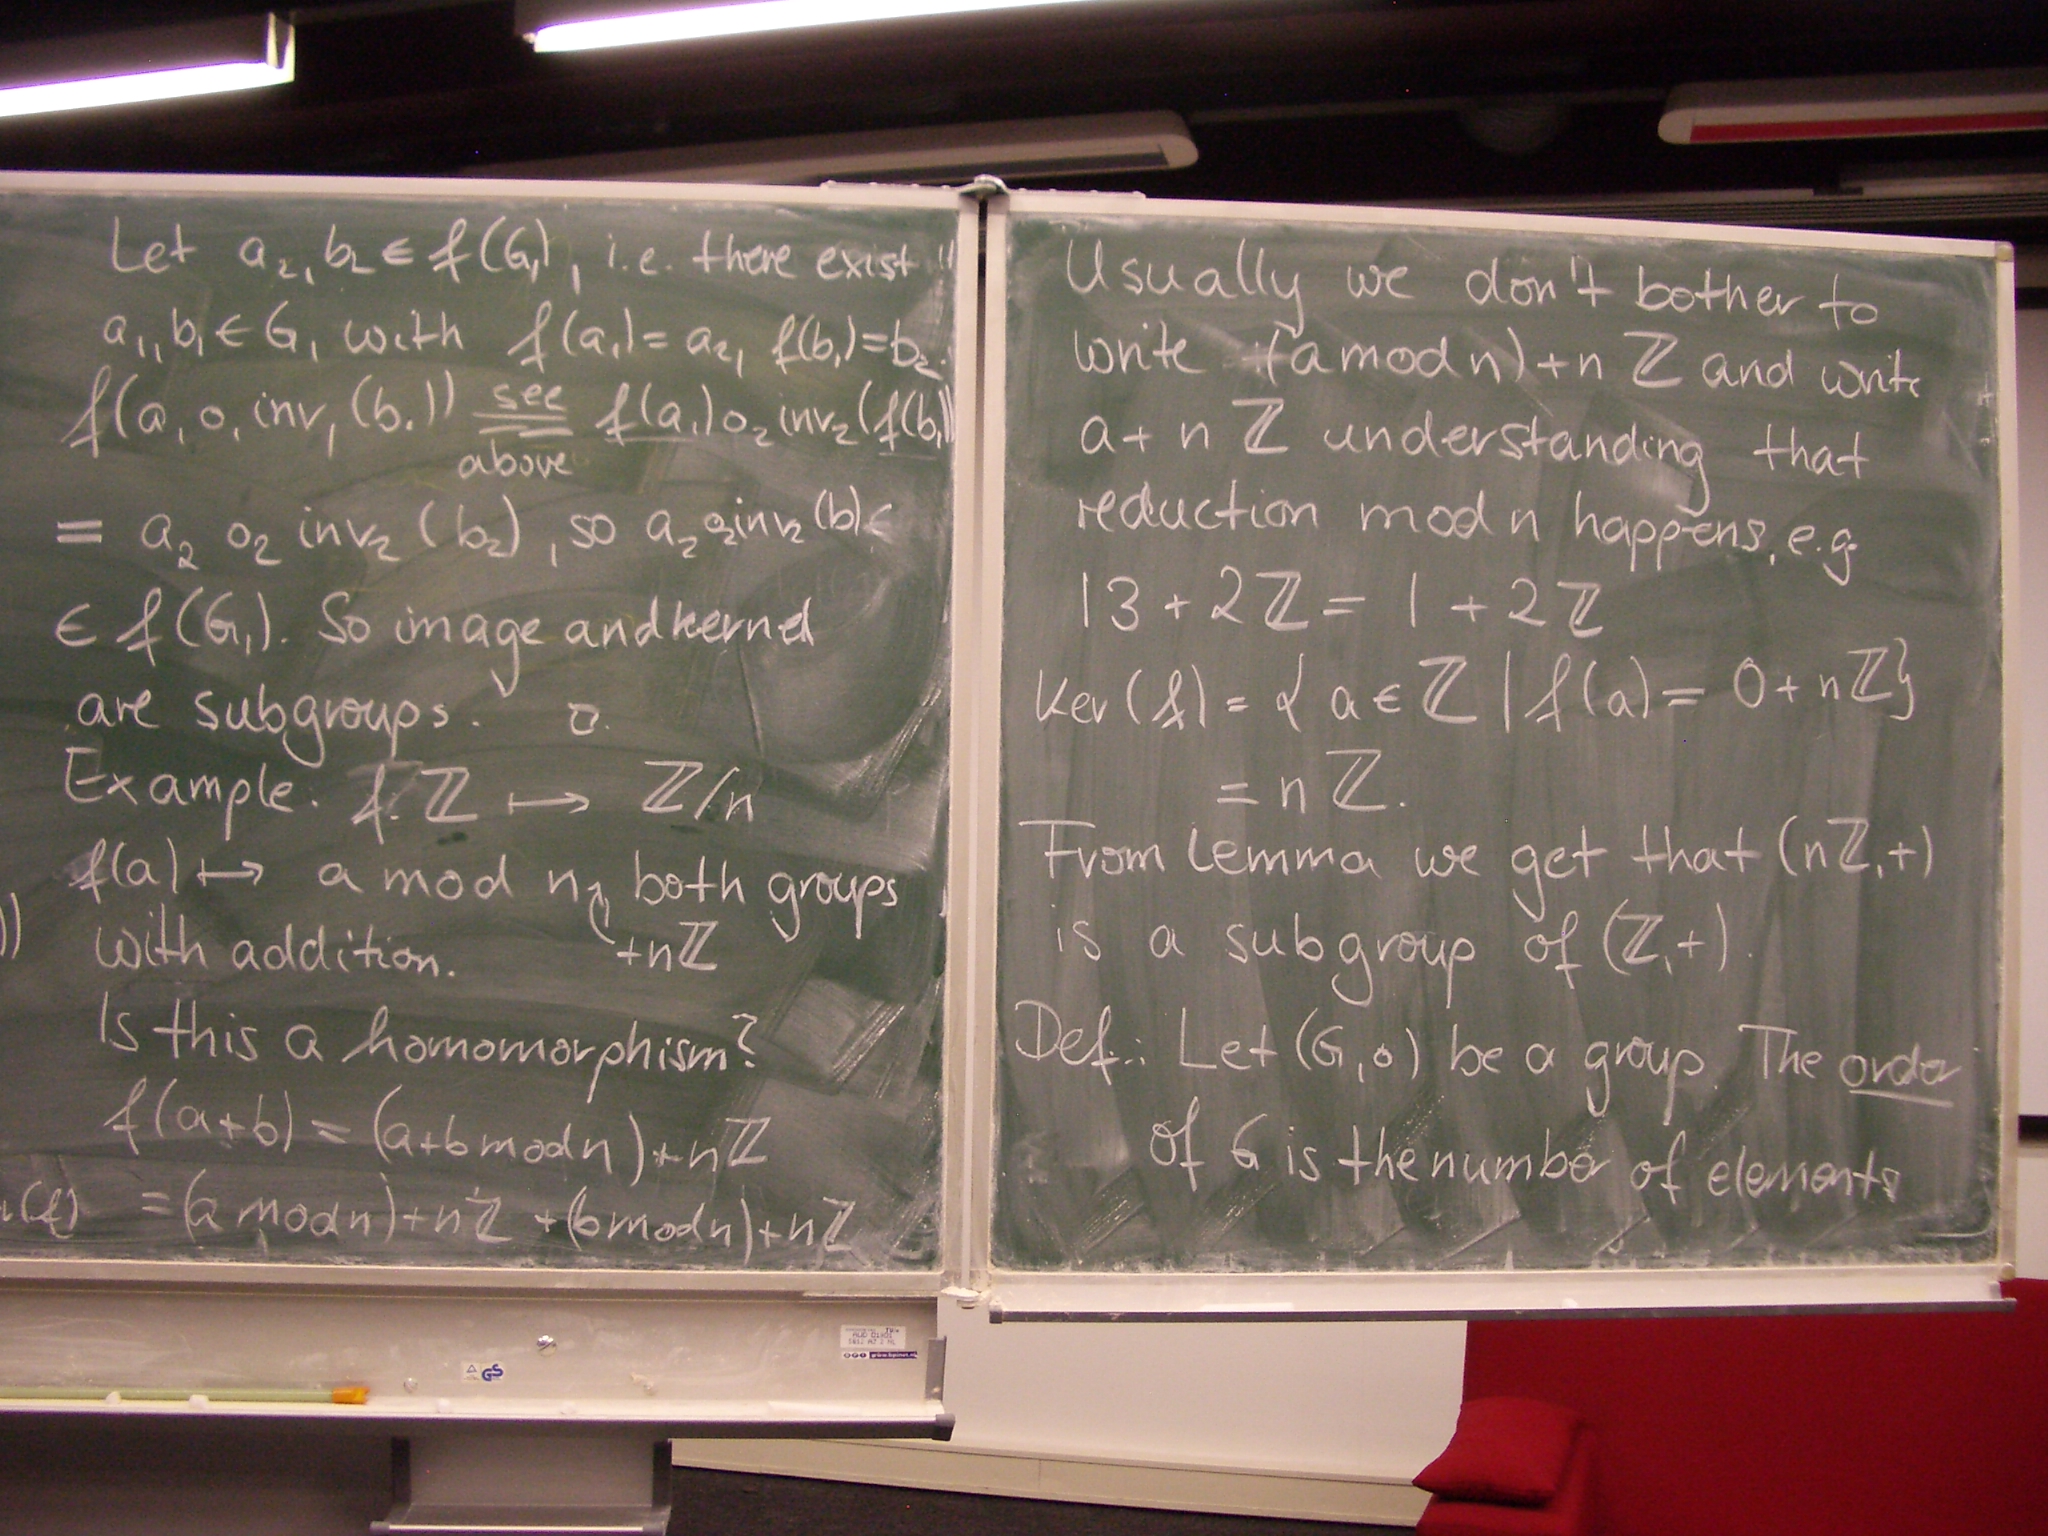 Let a₂, b₂ ∈ f(G₁), i.e. there exist
a₁, b₁ ∈ G₁ with f(a₁) = a₂, f(b₁) = b₂.
f(a₁ ∘₁ inv₁(b₁)) see above = f(a₁) ∘₂ inv₂(f(b₁))
= a₂ ∘₂ inv₂(b₂), so a₂ ∘₂ inv₂(b) ∈
∈ f(G₁). So image and kernel
are subgroups. □.
Example: f: ℤ ↦ ℤ/n
f(a) ↦ a mod n, both groups
+nℤ
with addition.
Is this a homomorphism?
f(a+b) = (a+b mod n) + nℤ
= (a mod n) + nℤ + (b mod n) + nℤ
Usually we don't bother to
write (a mod n) + nℤ and write
a + nℤ understanding that
reduction mod n happens, e.g.
13 + 2ℤ = 1 + 2ℤ
Ker(f) = { a ∈ ℤ | f(a) = 0 + nℤ}
= nℤ.
From Lemma we get that (nℤ, +)
is a subgroup of (ℤ, +).
Def.: Let (G, ∘) be a group. The order
of G is the number of elements